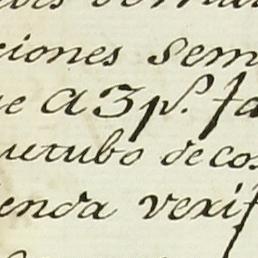 ciones sem
e a 3 p.ˢ fa
utubo de cos
enda verif